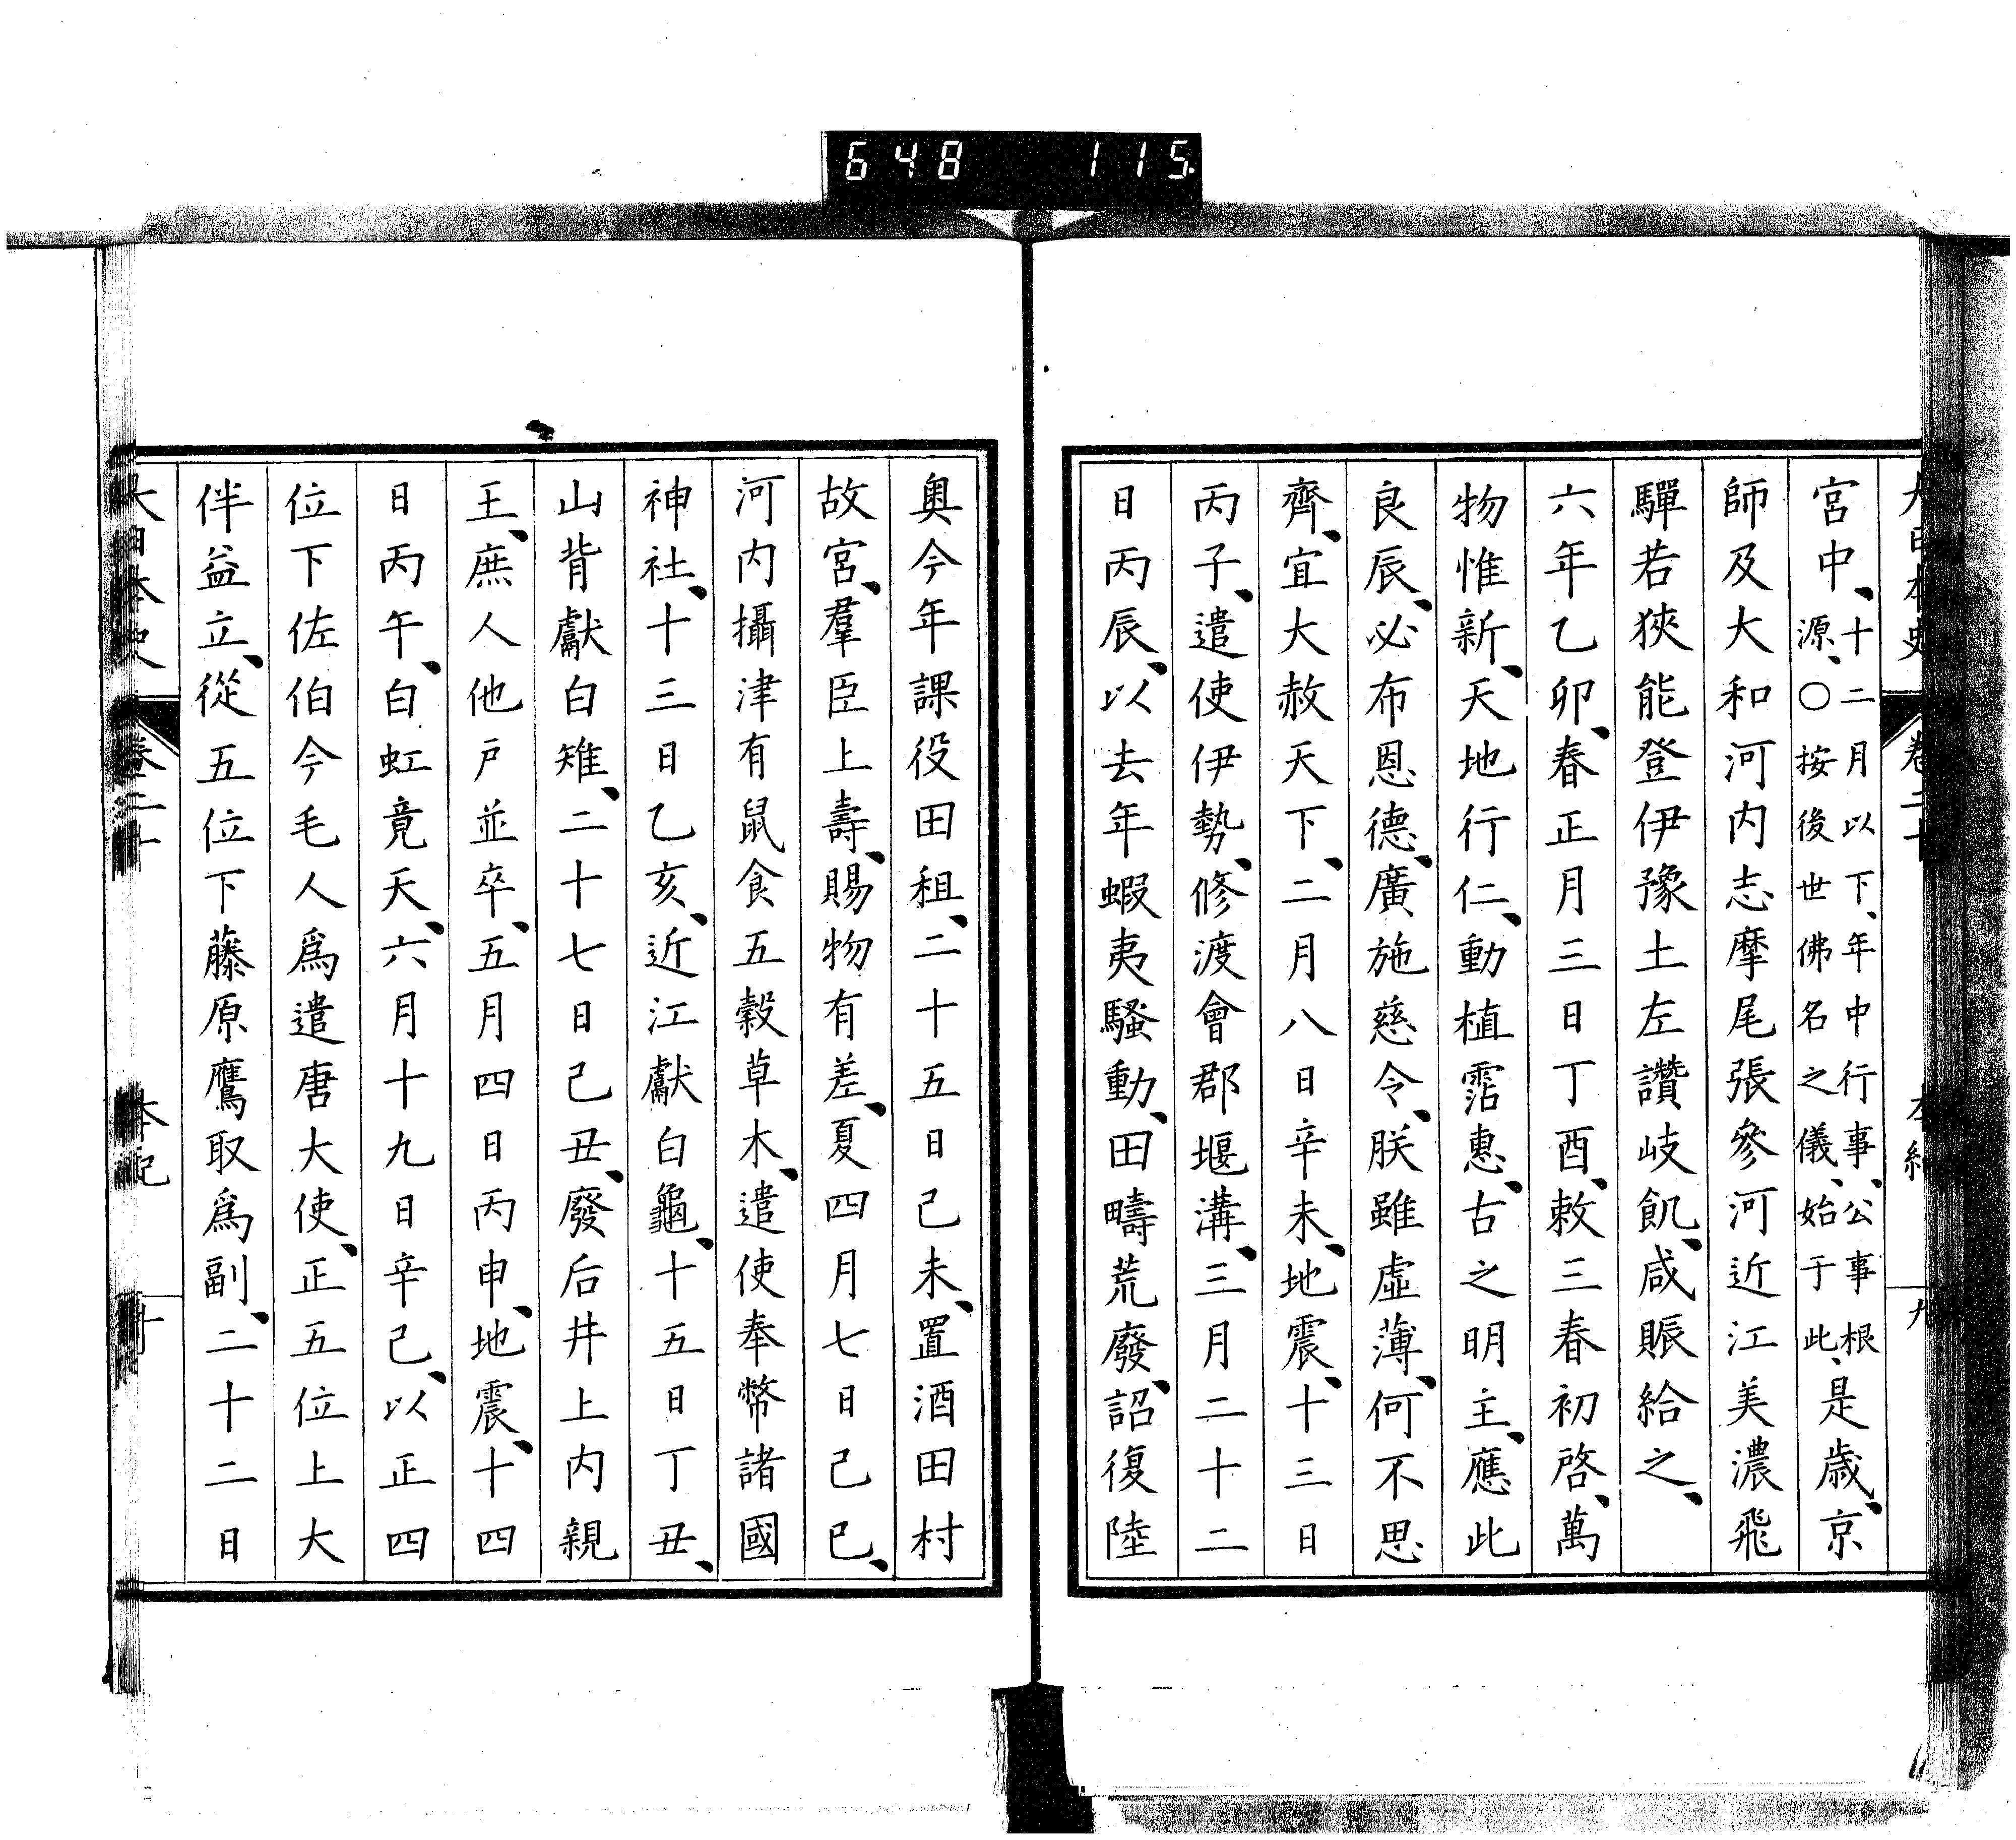 648 115
大日本史 卷二十 本紀 九
宮中、十二月以下、年中行事、公事根源、○按後世佛名之儀、始于此、是歳、京
師及大和河内志摩尾張參河近江美濃飛
驒若狹能登伊豫土左讚岐飢、咸賑給之、
六年乙卯、春正月三日丁酉、敕三春初啓、萬
物惟新、天地行仁、動植霑惠、古之明主、應此
良辰、必布恩德、廣施慈令、朕雖虛薄、何不思
齊、宜大赦天下、二月八日辛未、地震、十三日
丙子、遣使伊勢、修渡會郡堰溝、三月二十二
日丙辰、以去年蝦夷騷動、田疇荒廢、詔復陸
奥今年課役田租、二十五日己未、置酒田村
故宮、羣臣上壽、賜物有差、夏四月七日己巳、
河内攝津有鼠食五穀草木、遣使奉幣諸國
神社、十三日乙亥、近江獻白龜、十五日丁丑、
山背獻白雉、二十七日己丑、廢后井上内親
王、庶人他戸並卒、五月四日丙申、地震、十四
日丙午、白虹竟天、六月十九日辛巳、以正四
位下佐伯今毛人爲遣唐大使、正五位上大
伴益立、從五位下藤原鷹取爲副、二十二日
大日本史 卷二十 本紀 十